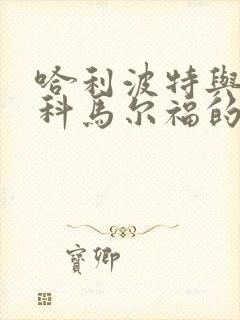 哈利波特與
科馬尔福的
寶卿